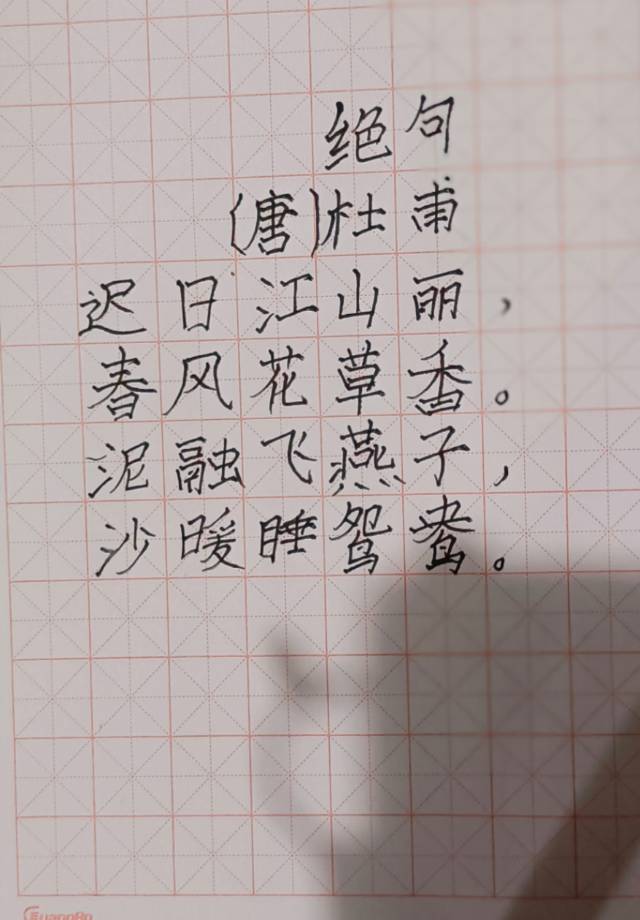 绝句
(唐)杜甫
迟日江山丽，
春风花草香。
泥融飞燕子，
沙暖睡鸳鸯。